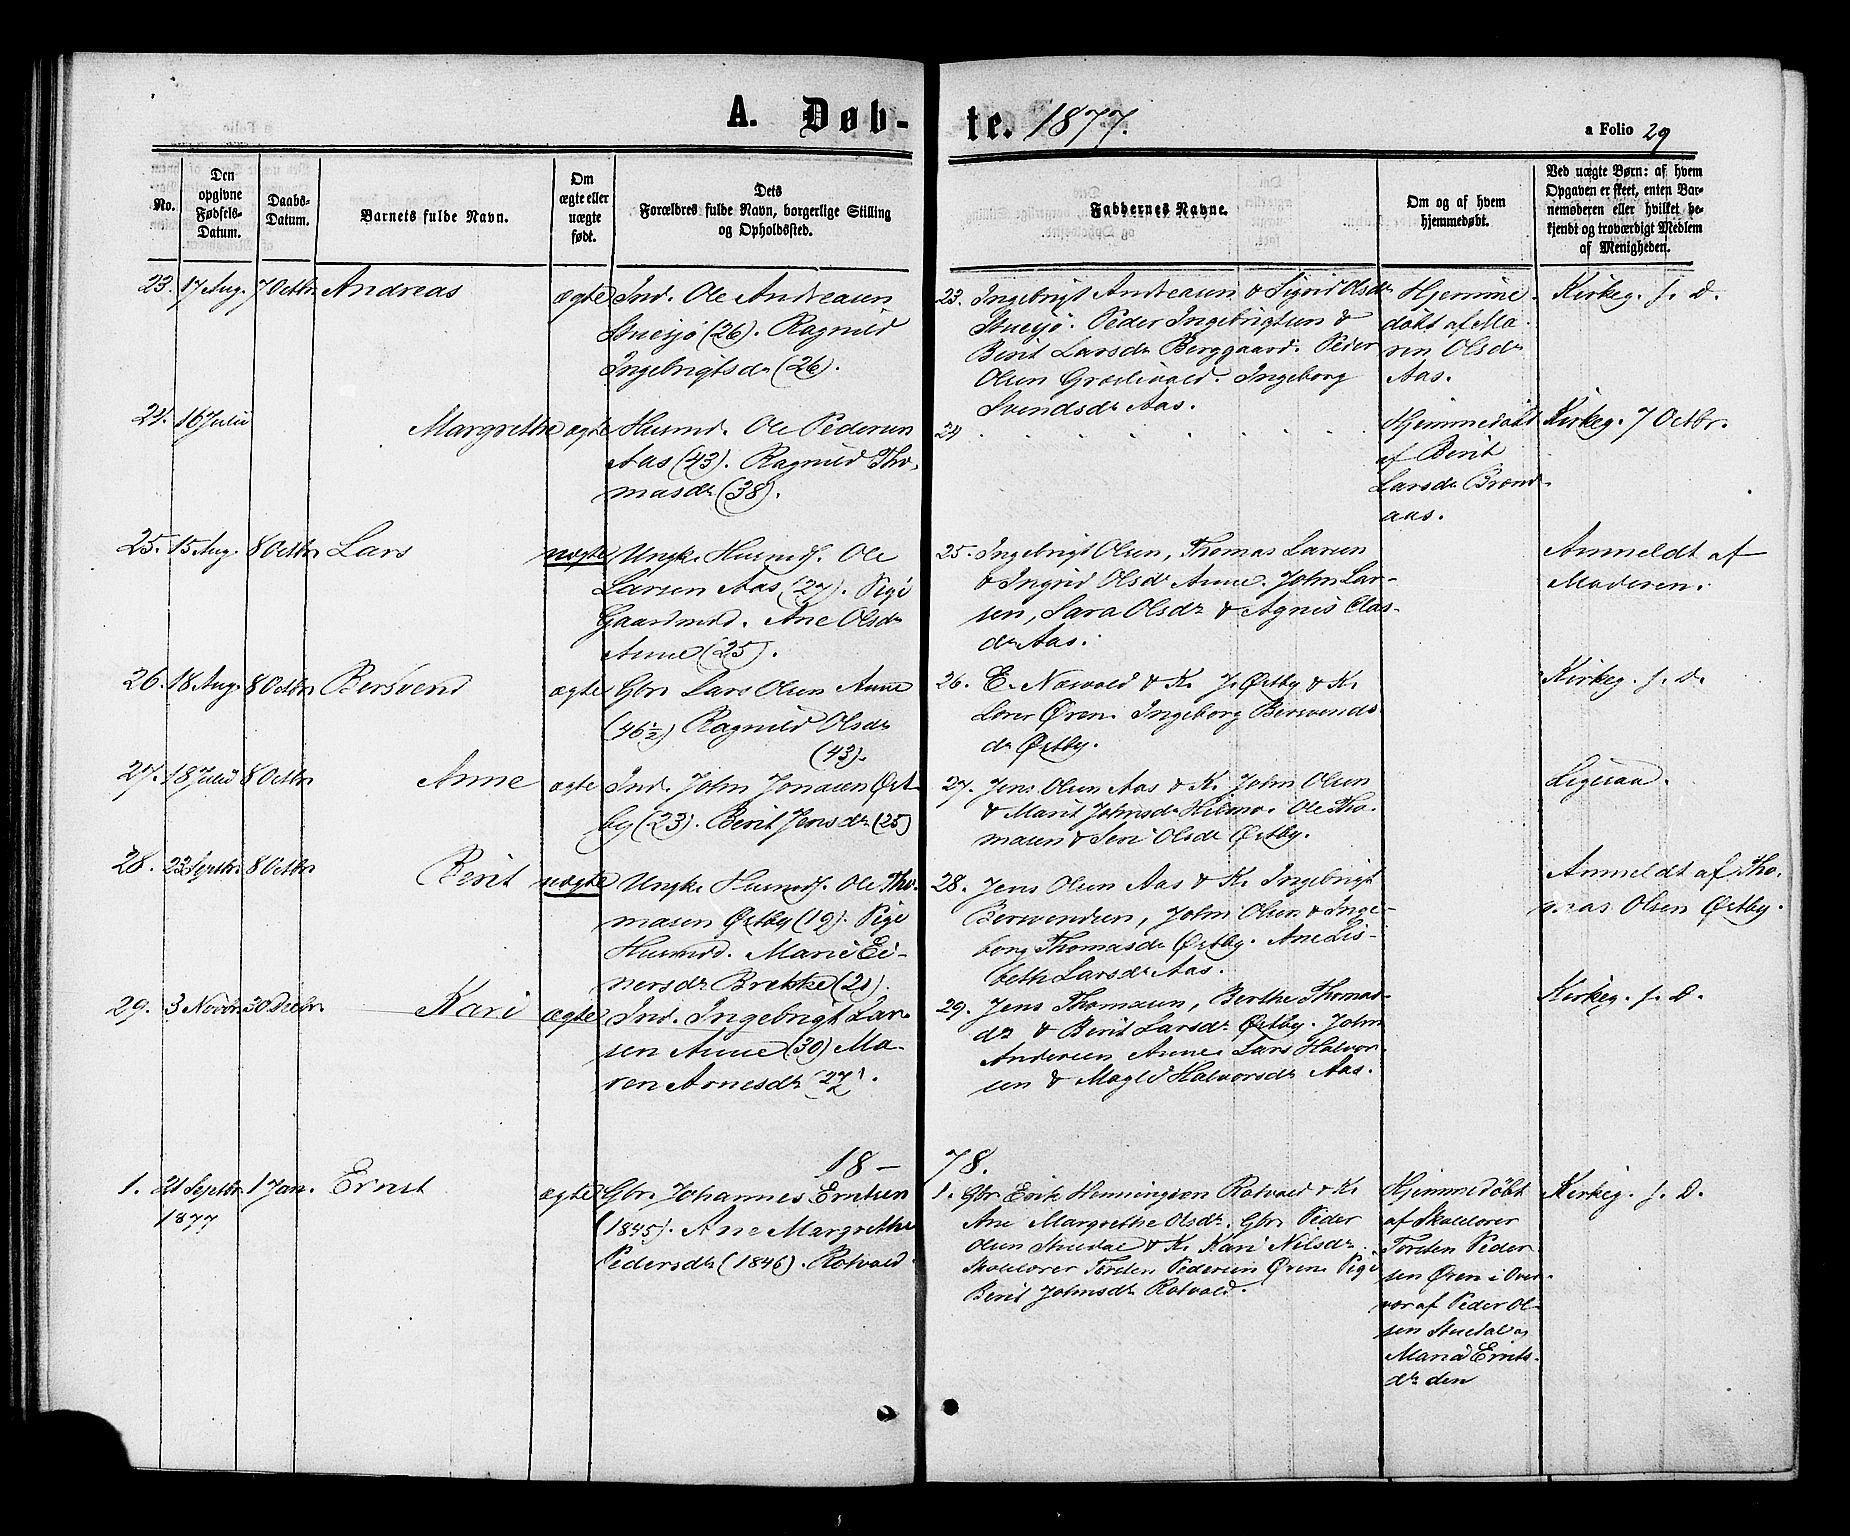 A. Døb-
te. 1877.
a Folio 29
No.
Den opgivne Fødsels-Datum.
Daabs-Datum.
Barnets fulde Navn.
Om ægte eller uægte født.
Dets Forældres fulde Navn, borgerlige Stilling og Opholdssted.
Faddernes Navne.
Om og af hvem hjemmedøbt.
Ved uægte Børn: af hvem Opgaven er skeet, enten Barnemoderen eller hvilket bekjendt og troværdigt Medlem af Menigheden.
23. 17 Aug. 7 Octbr. Andreas
ægte Ind. Ole Andreasen
Stuesjø (26). Ragnild
Ingebrigtsdr (26).
23. Ingebrigt Andreasen & Sigrid Olsdr
Stuesjø. Peder Ingebrigtsen &
Berit Larsdr Berggaard. Peder
Olsen Græslivold. Ingeborg
Svendsdr Aas.
Hjemme-
døbt af Ma-
ren Olsdr
Aas.
Kirkeg. s. D.
24. 16 Julii Margrethe ægte Husmd. Ole Pedersen
Aas (43). Ragnild Tho-
masdr (38).
24 . . . . . . . .
Hjemmedøbt
af Berit
Larsdr Brænd-
aas.
Kirkeg. 7 Octbr.
25. 15 Aug. 8 Octbr. Lars
uægte Ungk. Husmdf. Ole
Larsen Aas (27). Pige
Gaardmd. Ane Olsdr
Aune (25).
25. Ingebrigt Olsen, Thomas Larsen
& Ingrid Olsdr Aune. John Lar-
sen, Sara Olsdr & Agnis Clas-
dr Aas.
Anmeldt af
Moderen.
26. 18 Aug. 8 Octbr. Bersvend
ægte Gbr. Lars Olsen Aune
(46½) Ragnild Olsdr
(43).
26. E. Næsvold & K. J. Østby & K.
Lærer Øren. Ingeborg Bersvends-
dr Østby.
Kirkeg. s. D.
27. 18 Julii 8 Octbr. Anne
ægte Ind. John Jonasen Øst-
by (23). Berit Jensdr (25)
27. Jens Olsen Aas & K. John Olsen
& Marit Johnsdr Hilmo. Ole Tho-
masen & Seri Olsdr Østby.
Ligesaa.
28. 23 Septbr. 8 Octbr. Berit
uægte Ungk. Husmdf. Ole Tho-
masen Østby (19). Pige
Husmd. Marie Ei-
nersdr Brekke (21).
28. Jens Olsen Aas & K. Ingebrigt
Bersvendsen, John Olsen & Inge-
borg Thomasdr Østby. Ane Lis-
beth Larsdr Aas.
Anmeldt af Tho-
mas Olsen Østby.
29. 3 Novbr. 30 Decbr. Kari
ægte Ind. Ingebrigt Lar-
sen Aune (30) Ma-
ren Arnesdr (27).
29. Jens Thomasen, Berthe Thomas-
dr & Berit Larsdr Østby. John
Andersen Aune. Lars Halvor-
sen & Magli Halvorsdr Aas.
Kirkeg. s. D.
18 - 78.
1. 21 Septbr. 1877
1 Jan. Ernst
ægte Gbr. Johannes Erntsen
(1845). Ane Margrethe
Pedersdr (1846). Rotvold.
1. Gbr. Erik Henningsen Rotvold & K.
Ane Margrethe Olsdr. Gbr. Peder
Olsen Stuedal & K. Kari Nilsdr.
Skolelærer Torsten Pedersen Øren. Pige
Berit Johnsdr Rotvold.
Hjemmedøbt
af Skolelærer
Torsten Peder-
sen Øren i Over-
vær af Peder Ol-
sen Stuedal og
Maria Ernts-
dr den
Kirkeg. s. D.